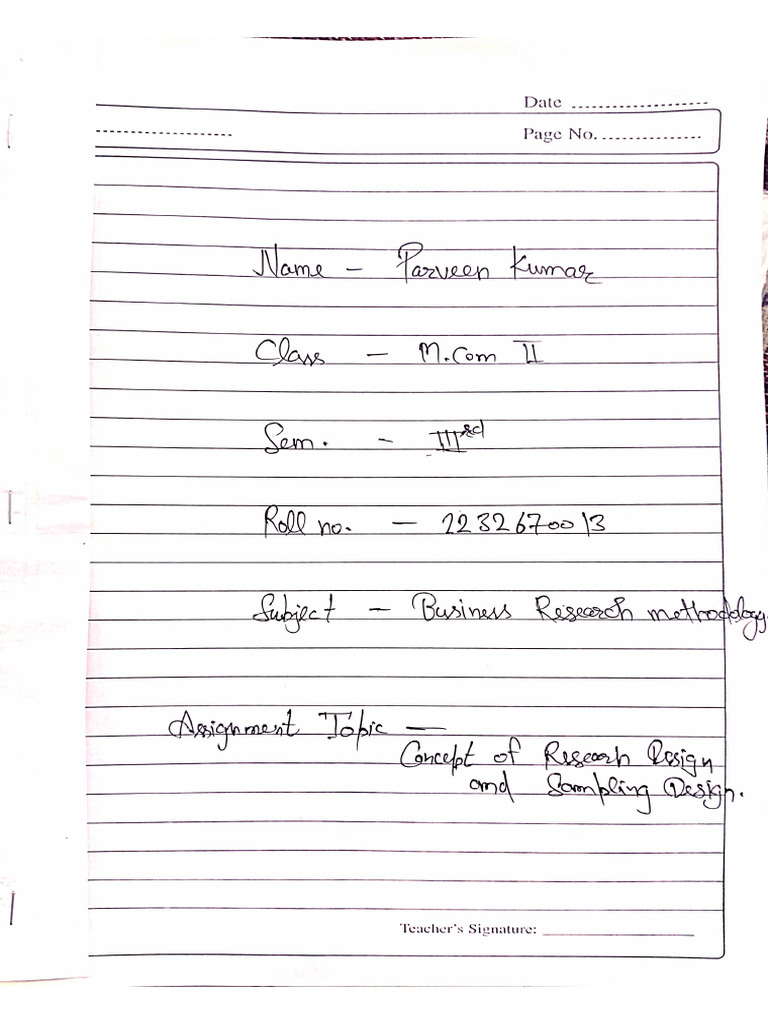 Date ....................
Page No. ................
Name - Parveen Kumar
Class - M.Com II
Sem. - IIIrd
Roll no. - 2232670013
Subject - Business Research methodology.
Assignment Topic —
Concept of Research Design
and Sampling Design.
Teacher's Signature: ____________________